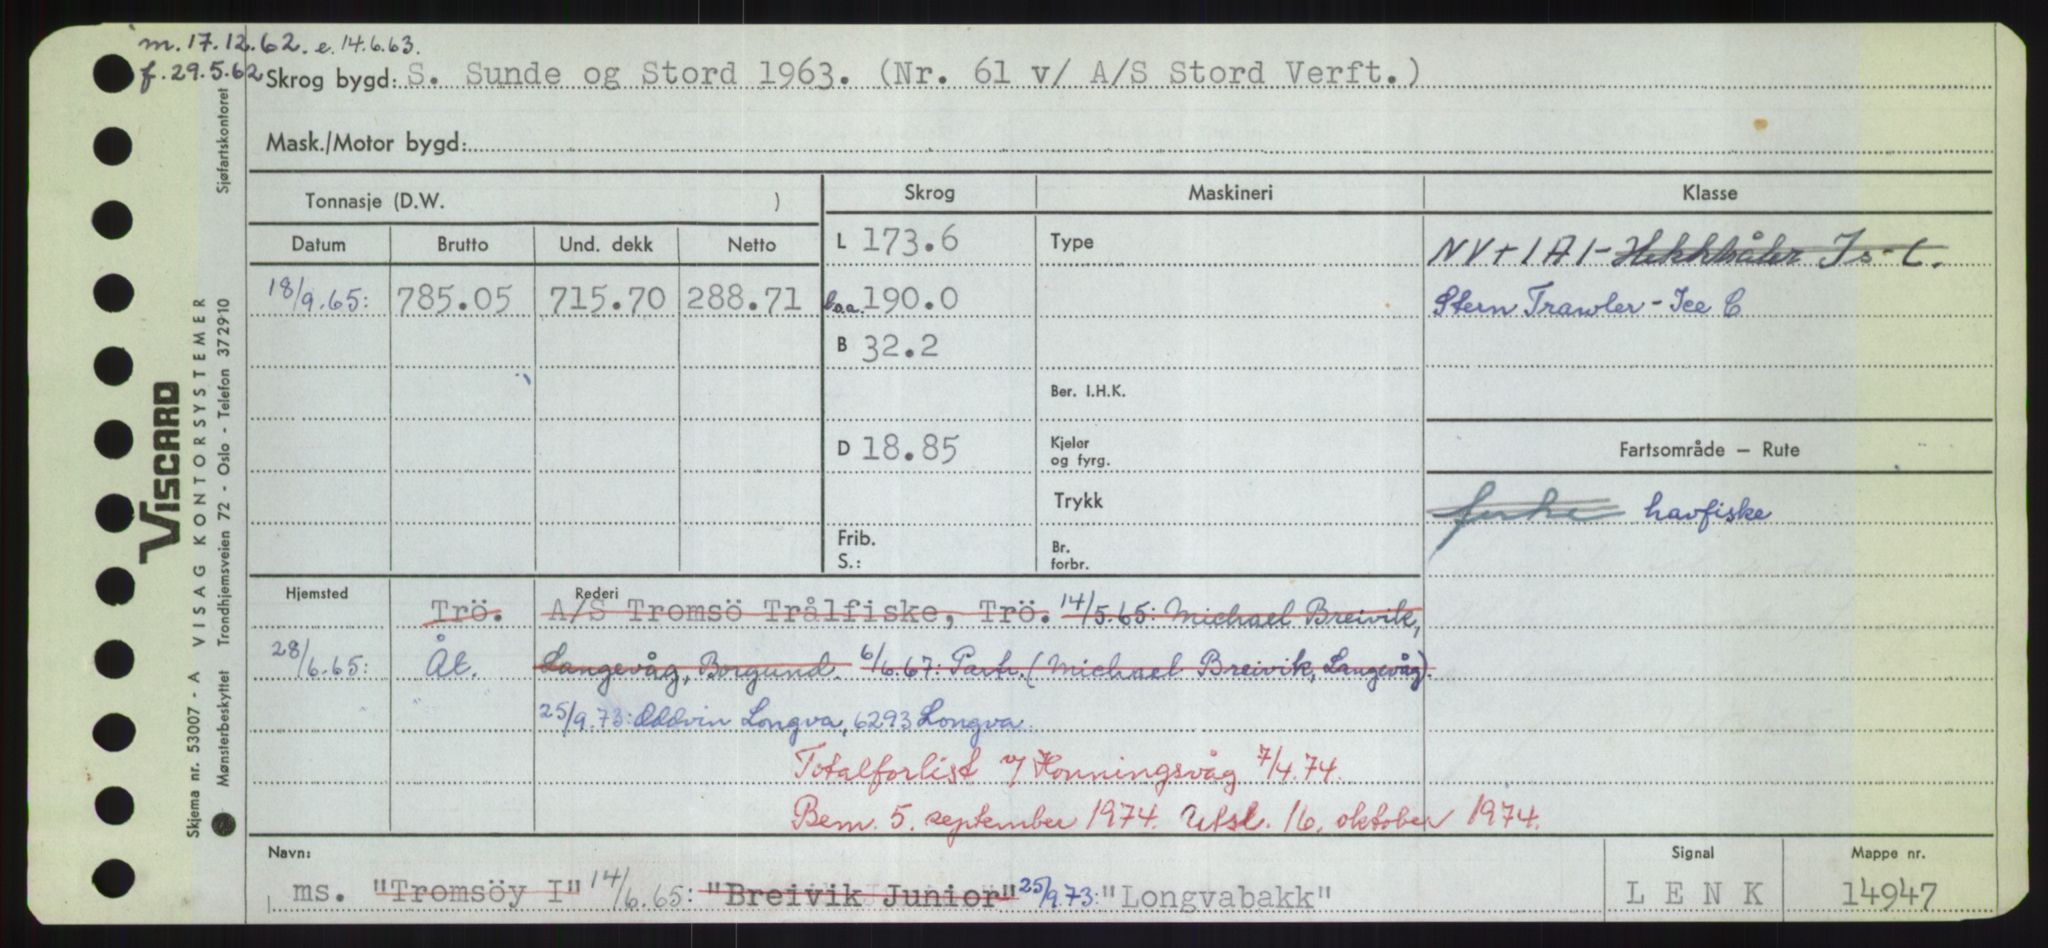 m. 17.12.62. e. 14.6.63.
f. 29.5.62
Skrog bygd: S. Sunde og Stord 1963. (Nr. 61 v/ A/S Stord Verft.)
Mask./Motor bygd:
Tonnasje (D.W. )
Skrog
Maskineri
Klasse
Datum
Brutto
Und. dekk
Netto
L 173.6
Type
NV+1A1-Hekktråler Is-C.
18/9.65: 785.05 715.70 288.71
l.o.a. 190.0
Stern Trawler-Ice C
B 32.2
Ber. I.H.K.
D 18.85
Kjeler
og fyrg.
Fartsområde — Rute
Trykk
fiske havfiske
Frib.
S.:
Br.
forbr.
Hjemsted
Rederi
Trö. A/S Tromsö Trålfiske, Trö. 14/5.65: Michael Breivik,
28/6.65: Ål. Langevåg, Borgund. 6/6.67: Partr. (Michael Breivik, Langevåg).
25/9.73: Oddvin Longva, 6293 Longva.
Totalforlist v/ Honningsvåg 7/4.74.
Bem. 5. september 1974. Utsl. 16. oktober 1974.
Navn:
Signal
Mappe nr.
ms. "Tromsöy I" 14/6.65: "Breivik Junior" 25/9.73: "Longvabakk"
LENK
14947
Skjema nr. 53007 - A VISAG KONTORSYSTEMER
Mønsterbeskyttet Trondhjemsveien 72 - Oslo - Telefon 372910 Sjøfartskontoret
VISCARD